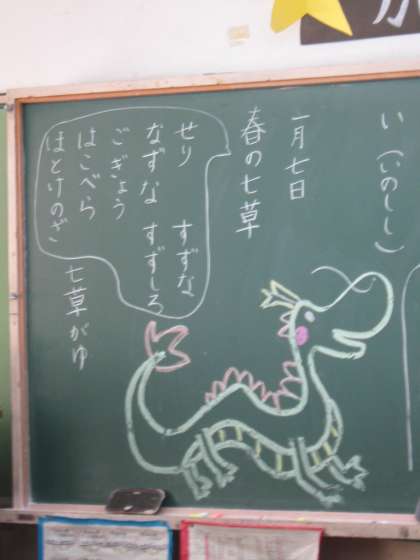 い(いのしし)
一月七日
春の七草
せり すずな
なずな すずしろ
ごぎょう
はこべら
ほとけのざ
七草がゆ